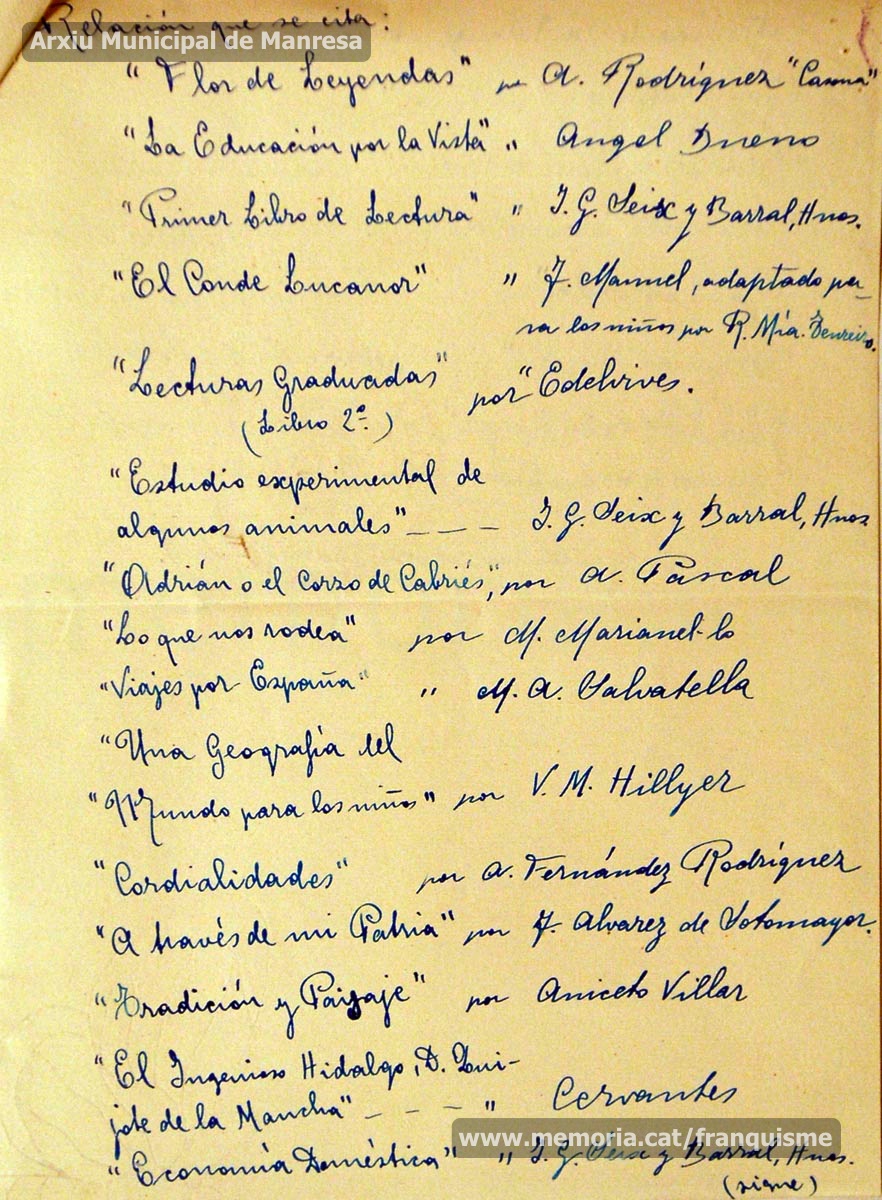 Relación que se cita:
Arxiu Municipal de Manresa
"Flor de Leyendas" por A. Rodríguez "Casona"
"La Educación por la Vista" " Angel Bueno
"Primer Libro de Lectura" " I. G. Seix y Barral, Hnos.
"El Conde Lucanor" " J. Manuel, adaptado pa-
ra los niños por R. Mía. Tenreiro.
"Lecturas Graduadas" por "Edelvives.
(Libro 2º.)
"Estudio experimental de
algunos animales" - - - I. G. Seix y Barral, Hnos
"Adrián o el Corzo de Cabriés", por A. Pascal
"Lo que nos rodea" por M. Marianel-lo
"Viajes por España" " M. A. Salvatella
"Una Geografía del
"Mundo para los niños" por V. M. Hillyer
"Cordialidades" por A. Fernández Rodríguez
"A través de mi Patria" por F. Alvarez de Sotomayor.
"Tradición y Paisaje" por Aniceto Villar
"El Ingenioso Hidalgo, D. Qui-
jote de la Mancha" - - - " Cervantes
www.memoria.cat/franquisme
"Economía Doméstica" " I. G. Seix y Barral, Hnos.
(sigue)